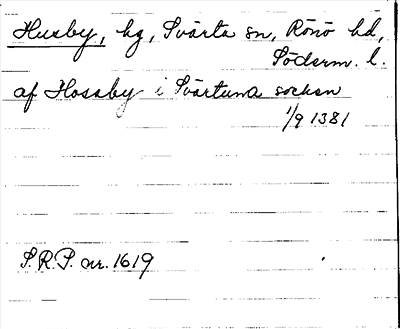 Husby, hg, Svärta sn, Rönö hd,
Söderm. l.
af Hosaby i Svärtuna sochen
1/9 1381
S.R.P. nr. 1619